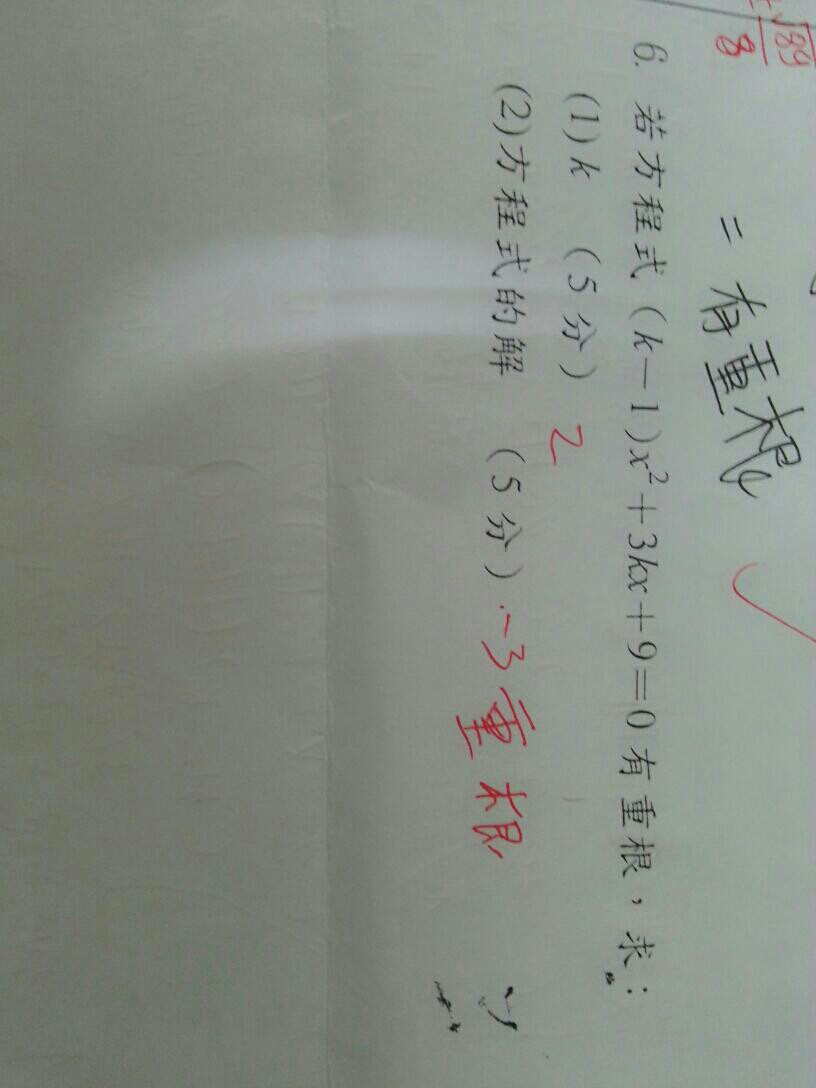 √89
8
= 有重根
6. 若方程式(k-1)x²+3kx+9=0有重根，求：
(1)k (5分) 2
(2)方程式的解 (5分) -3重根